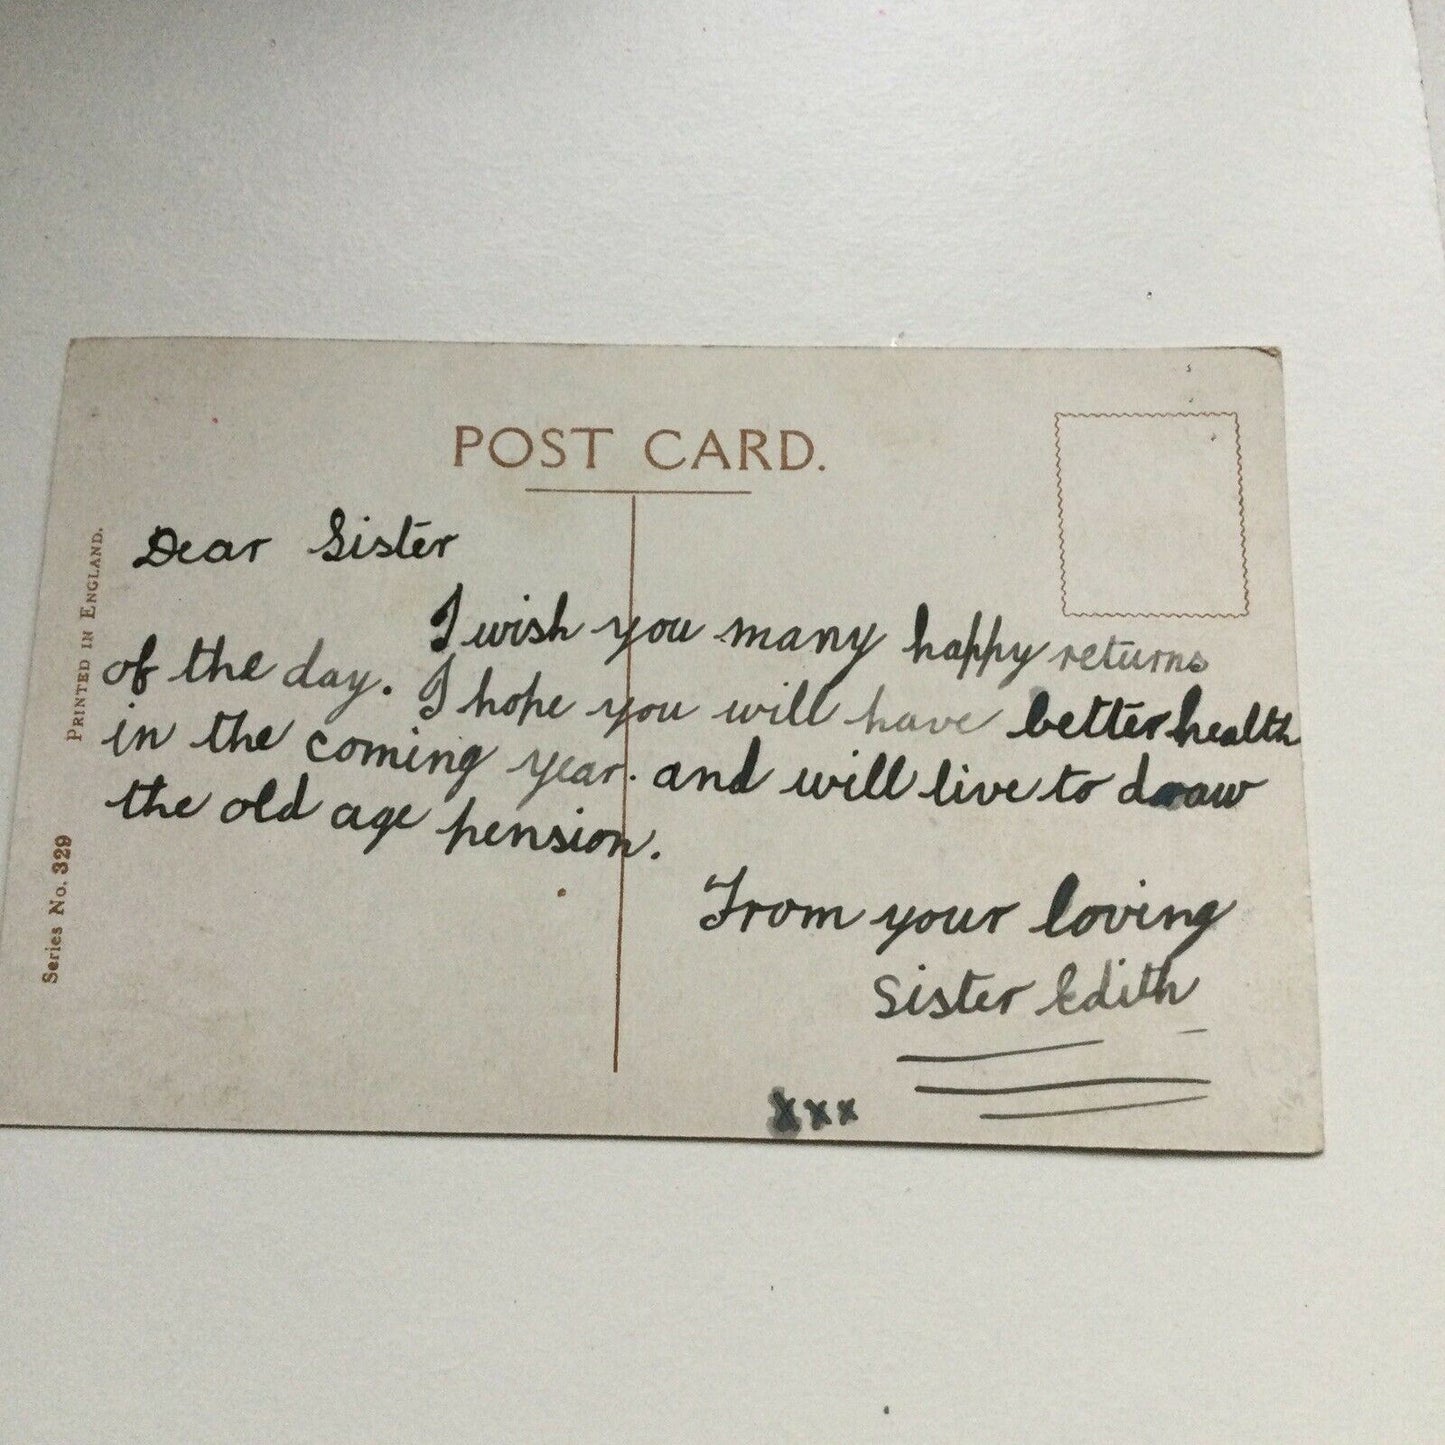 POST CARD.
PRINTED IN ENGLAND.
Series No. 329
Dear Sister
I wish you many happy returns
of the day. I hope you will have better health
in the coming year. and will live to draw
the old age pension.
From your loving
Sister Edith
xxx